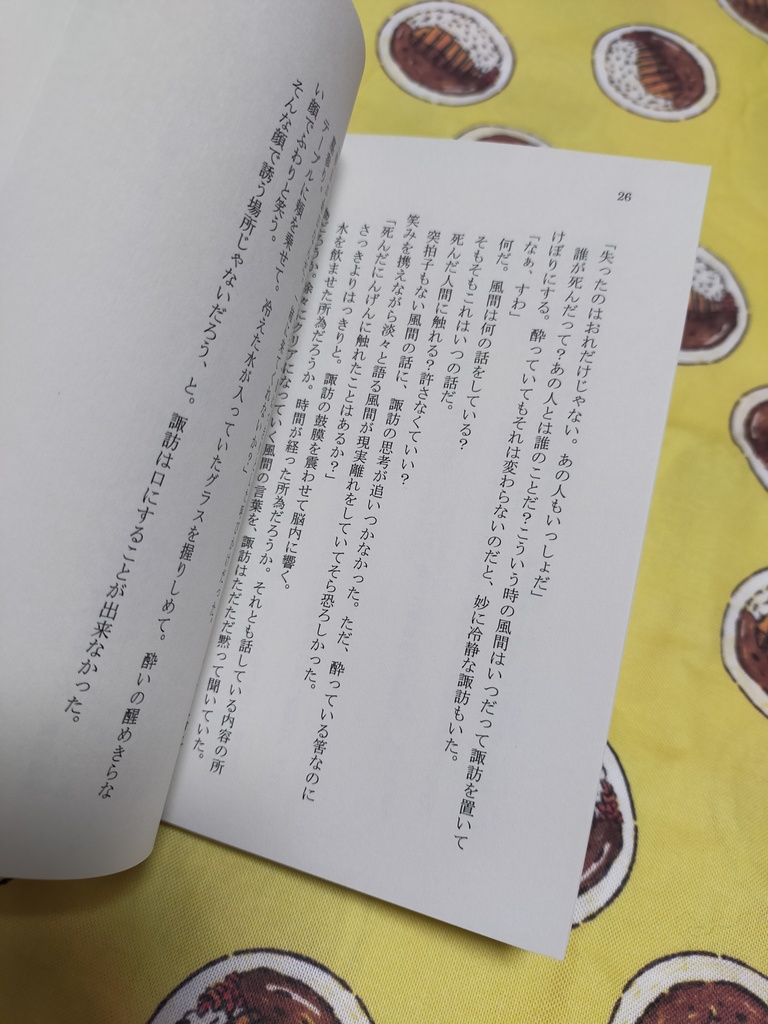 26
「失ったのはおれだけじゃない。あの人もいっしょだ」
誰が死んだって？あの人とは誰のことだ？こういう時の風間はいつだって諏訪を置いて
けぼりにする。酔っていてもそれは変わらないのだと、妙に冷静な諏訪もいた。
「なぁ、すわ」
何だ。風間は何の話をしている？
そもそもこれはいつの話だ。
死んだ人間に触れる？許さなくていい？
突拍子もない風間の話に、諏訪の思考が追いつかなかった。ただ、酔っている筈なのに
笑みを携えながら淡々と語る風間が現実離れをしていてそら恐ろしかった。
「死んだにんげんに触れたことはあるか？」
さっきよりはっきりと。諏訪の鼓膜を震わせて脳内に響く。
水を飲ませた所為だろうか。時間が経った所為だろうか。それとも話している内容の所
だろうか。徐々にクリアになっていく風間の言葉を、諏訪はただただ黙って聞いていた。
テーブルに頬を乗せて。冷えた水が入っていたグラスを握りしめて。酔いの醒めきらな
い顔でふわりと笑う。
そんな顔で誘う場所じゃないだろう、と。諏訪は口にすることが出来なかった。